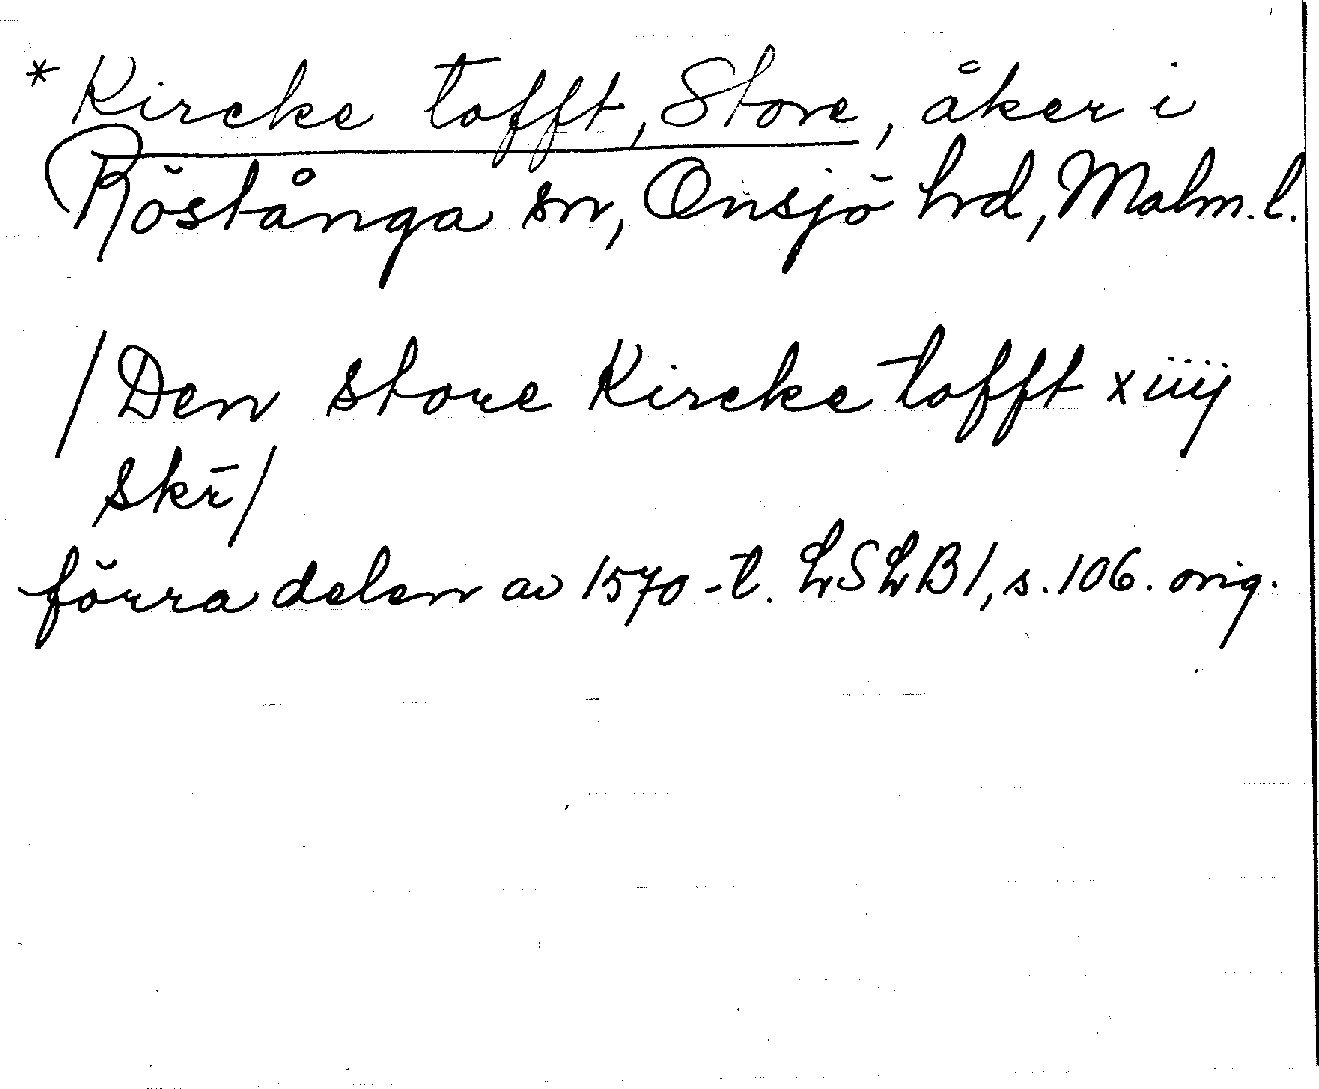 *Kircke tofft, Store, åker i
Röstånga sn, Onsjö hrd, Malm. l.
/Den store Kircke tofft xiiij
skr̄/
förra delen av 1570-t. LSLB1, s. 106. orig.